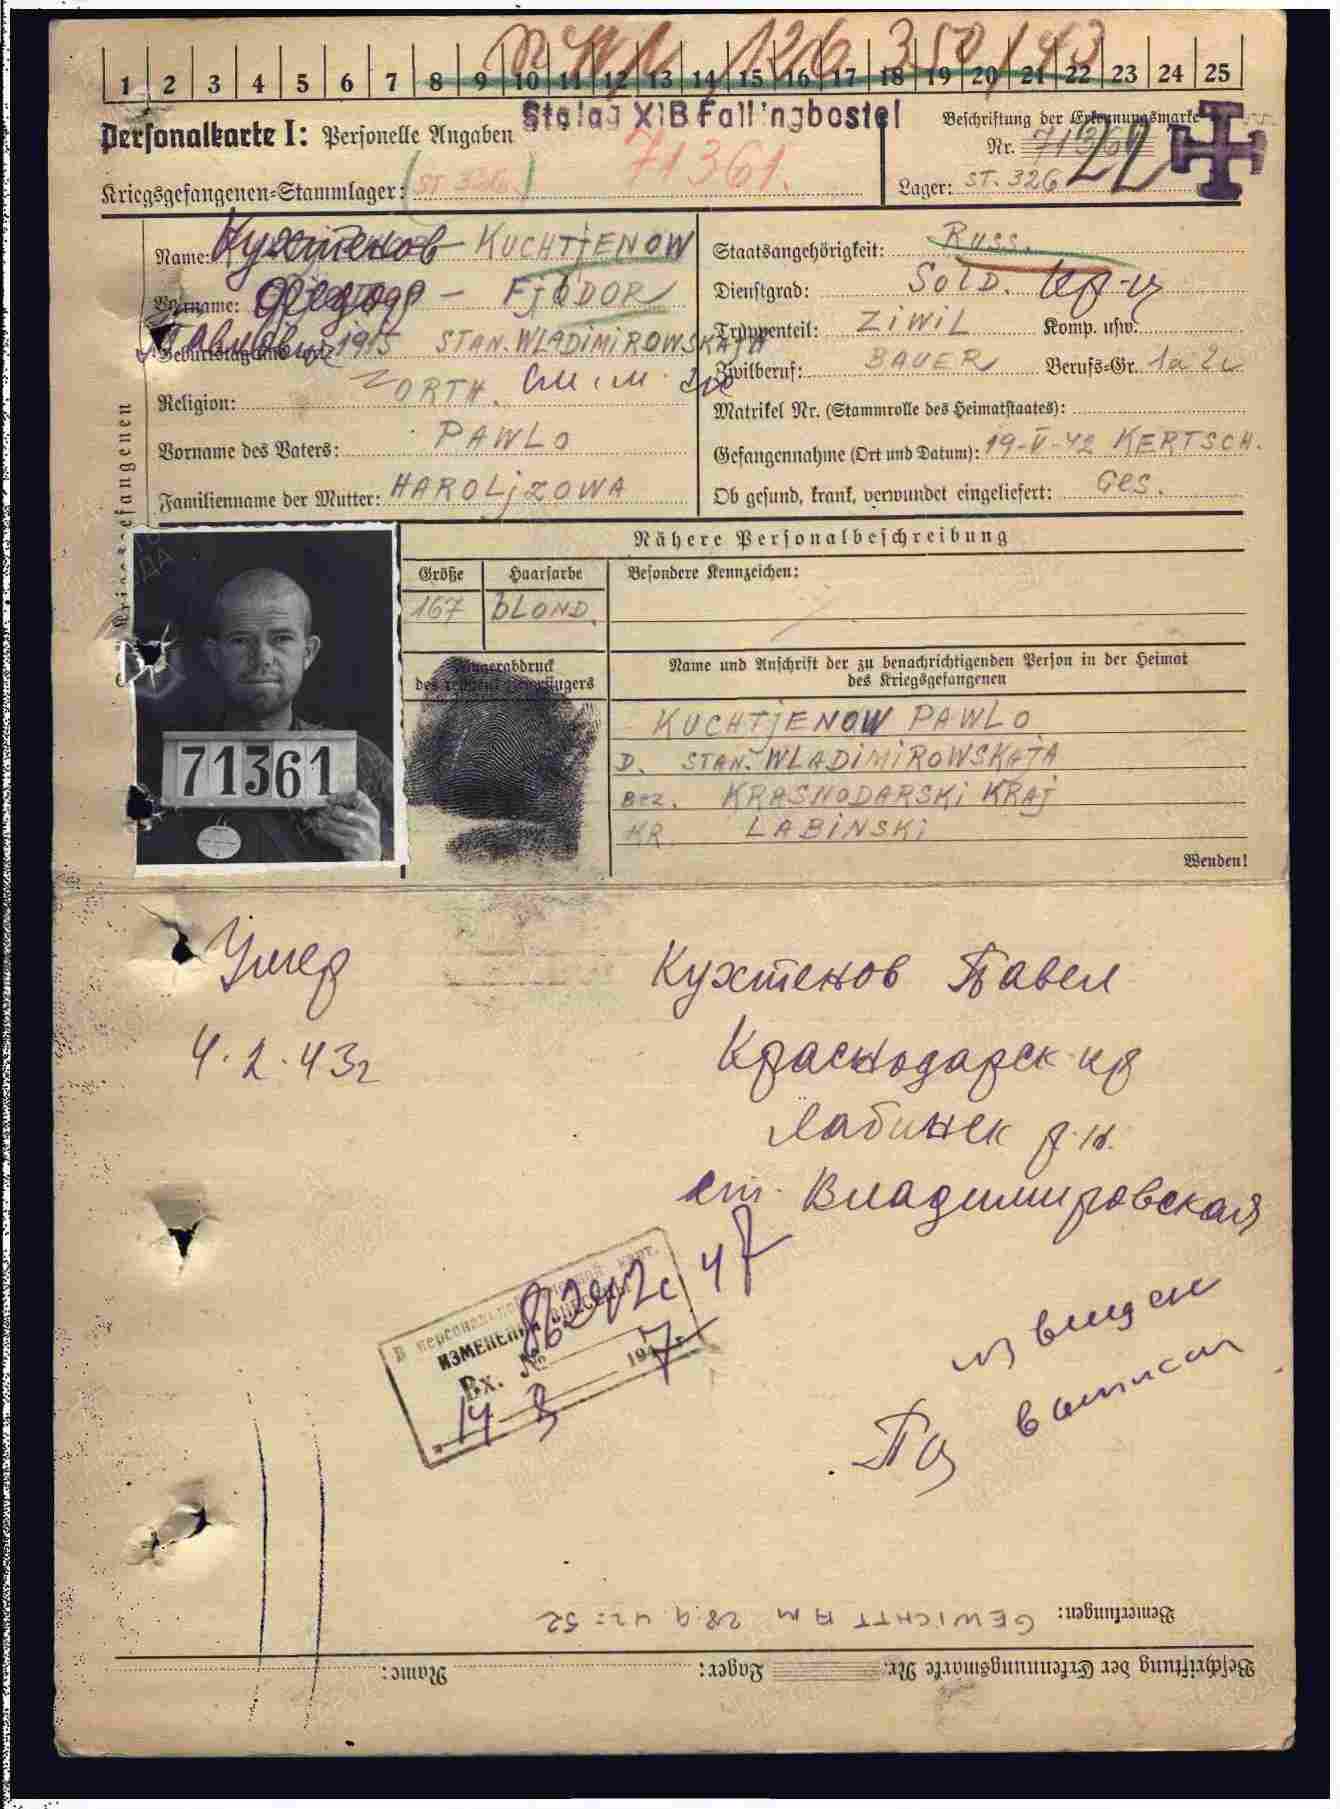 1 2 3 4 5 6 7 8 9 10 11 12 13 14 15 16 17 18 19 20 21 22 23 24 25
126 350/43
Stalag XIB Fallingbostel
Personalkarte I: Personelle Angaben
71361.
Beschriftung der Erkennungsmarke
Nr. 71361
22
Kriegsgefangenen-Stammlager: (ST 326.)
Lager: ST. 326
Name: Кухтенов – KUCHTJENOW
Vorname: Федор – FJODOR
Павлович
Geburtstag und -ort: 1915 STAN. WLADIMIROWSKAJA
Religion: ORTH. см. и м.
Vorname des Vaters: PAWLO
Familienname der Mutter: HAROLJZOWA
Staatsangehörigkeit: RUSS.
Dienstgrad: SOLD. кр-ц
Truppenteil: ZIWIL Komp. usw.:
Zivilberuf: BAUER Berufs-Gr. 1a 2c
Matrikel Nr. (Stammrolle des Heimatstaates):
Gefangennahme (Ort und Datum): 19-V-42 KERTSCH.
Ob gesund, krank, verwundet eingeliefert: Ges.
Nähere Personalbeschreibung
Größe Haarfarbe Besondere Kennzeichen:
167 BLOND.
71361
Fingerabdruck
des rechten Zeigefingers
Name und Anschrift der zu benachrichtigenden Person in der Heimat
des Kriegsgefangenen
KUCHTJENOW PAWLO
D. STAN. WLADIMIROWSKAJA
BEZ. KRASNODARSKI KRAJ
KR. LABINSKI
Wenden!
Умер
4.2.43г
Кухтенов Павел
Краснодарск кр
Лабинск р.н.
ст. Владимировская
В персональной карт.
ИЗМЕНЕНИЯ ВНЕСЕНЫ
Вх. № 194 7 г.
14 3
извещен
выписан
Bemerkungen: GEWICHT AM 28.9.42=52
Beschriftung der Erkennungsmarke Nr. Lager: Name: